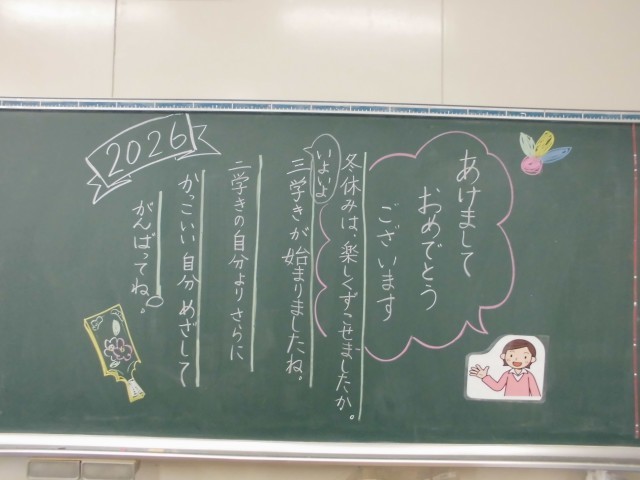 あけまして
おめでとう
ございます
冬休みは、楽しくすごせましたか。
いよいよ
三学きが始まりましたね。
二学きの自分よりさらに
かっこいい自分めざして
がんばってね。
2026